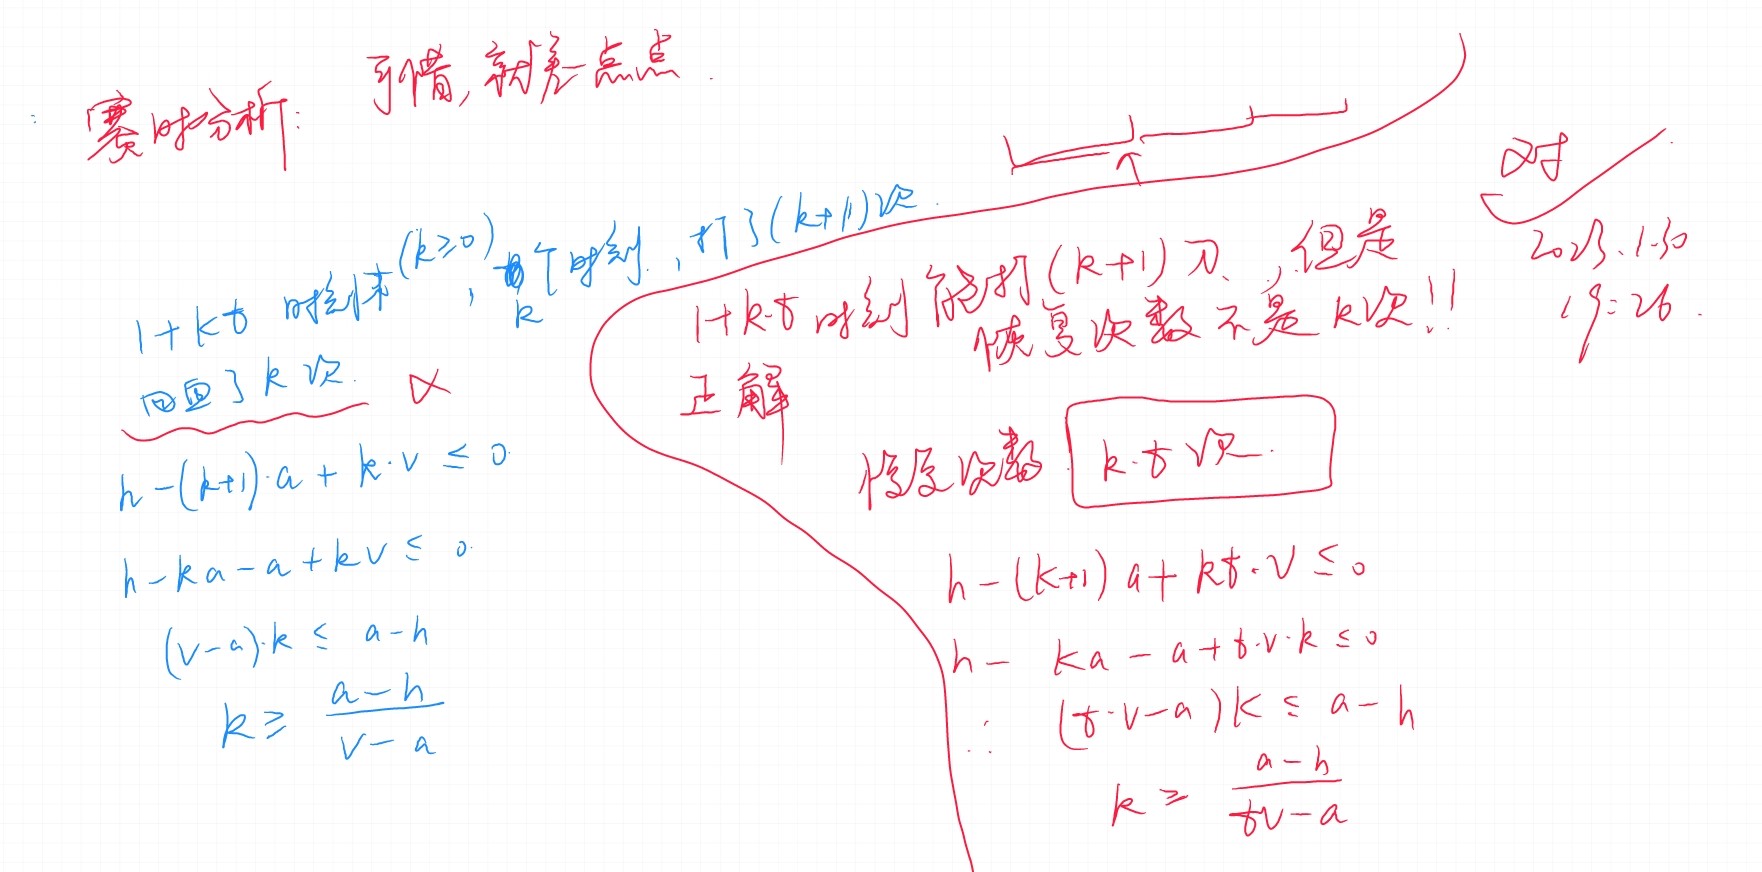 赛时分析:
可惜,就差一点点.
1+kt 时刻末(k≥0), k个时刻, 打了(k+1)次.
回血了k次.
h-(k+1)·a+k·v≤0.
h-ka-a+kv≤0.
(v-a)·k≤a-h
k≥ (a-h)/(v-a)
1+k·t时刻能打(k+1)刀, 但是
恢复次数不是k次!!
正解
恢复次数 k·t次.
h-(k+1)a+kt·v≤0
h-ka-a+t·v·k≤0
∴ (t·v-a)k≤a-h
k≥ (a-h)/(tv-a)
对
2023.1.30
19:26.